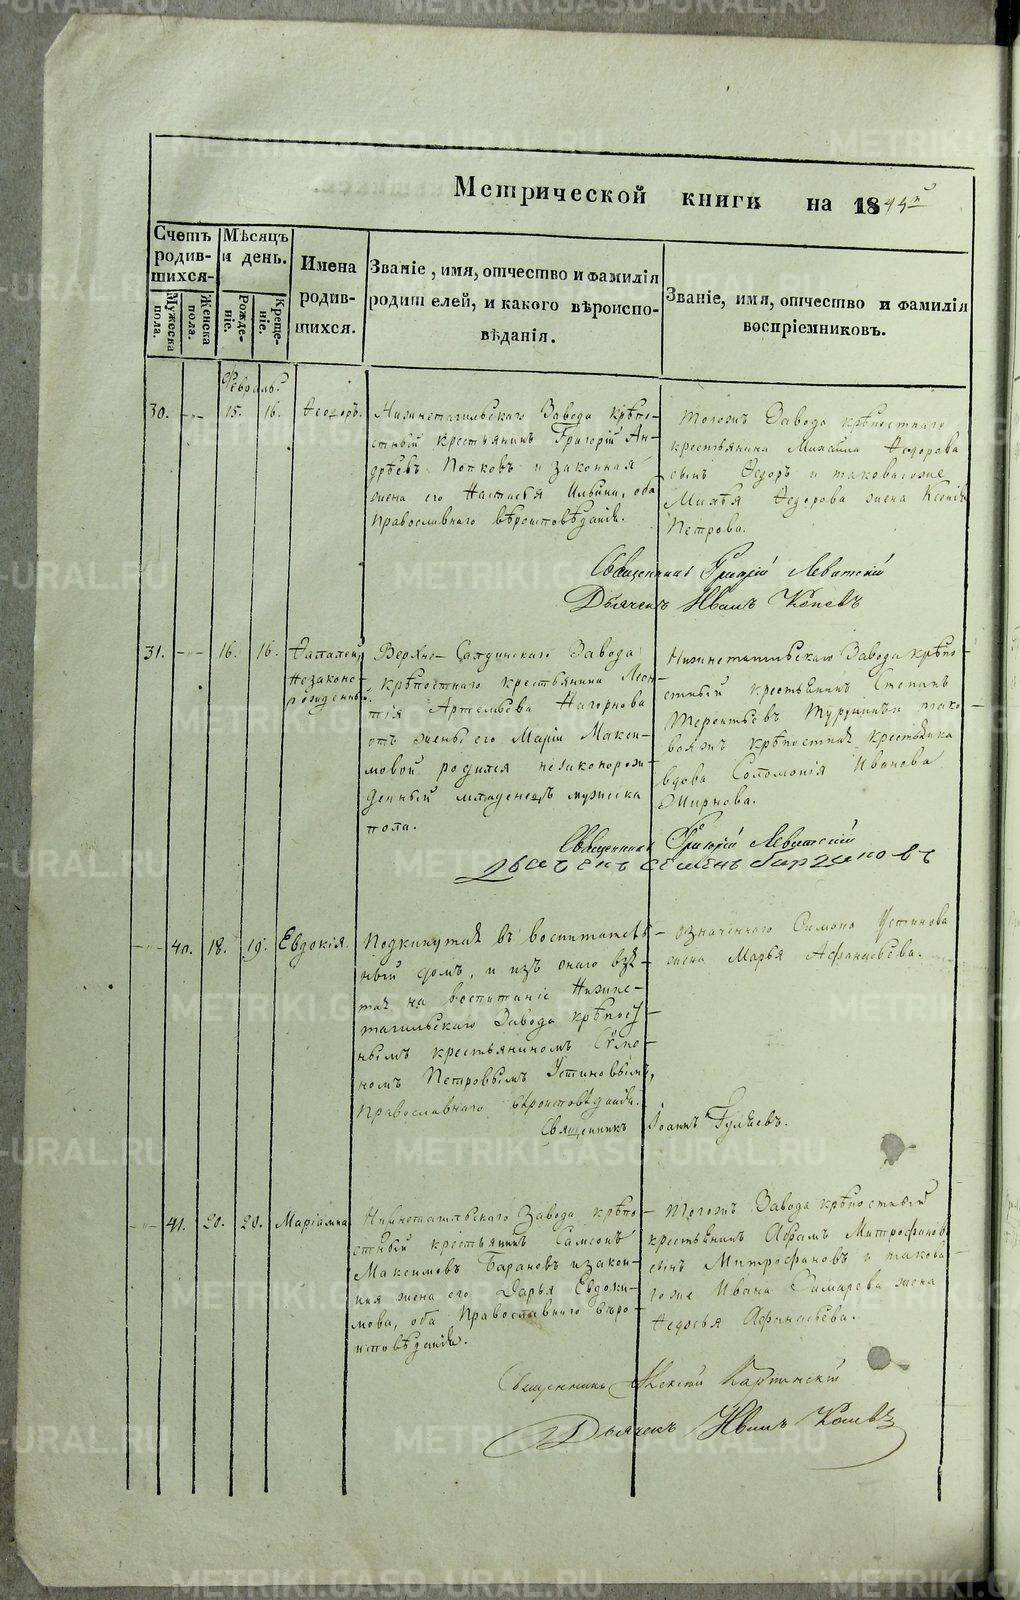 Метрической книги на 18
Счетъ родившихся.
Мѣсяцъ и день.
Имена родившихся.
Званіе, имя, отчество и фамилія родителей, и какого вѣроисповѣданія.
Званіе, имя, отчество и фамилія воспріемниковъ.
Мужеска пола.
Женска пола.
Рожденіе.
Крещеніе.
Февраль.
30. 15. 16. Ѳеодоръ.
Нижнетагильскаго Завода крѣпо-
стный крестьянинъ Григорій Ан-
дрѣевъ Попковъ и законная
жена его Настасья Ильина, оба
Православнаго вѣроисповѣданія.
Тогожъ Завода крѣпостнаго
крестьянина Михаила Ѳедорова
сынъ Ѳедоръ и таковагоже
Ѳедорова жена Ксенія
Петрова.
Священникъ Григорій Левитскій
Дьячекъ Иванъ Копевъ
31. 16. 16.
Незаконо-
рожденный.
Верхно-Салдинскаго Завода
крѣпостнаго крестьянина Леон-
тія Артемьева Нагорнова
отъ жены его Маріи Макси-
мовой родился незаконорож-
денный младенецъ мужеска
пола.
Нижнетагильскаго Завода крѣпо-
стный крестьянинъ Степанъ
Терентьевъ и тако-
ваяжъ крѣпостная крестьянка
вдова Соломонія Иванова
Смирнова.
Священникъ Григорій Левитскій
Дьячекъ Семенъ
40. 18. 19. Евдокія.
Подкинутая въ воспитатель-
ный домъ, и изъ онаго взя-
тая на воспитаніе Нижне-
тагильскаго Завода крѣпост-
нымъ крестьяниномъ Симо-
номъ Петровымъ Устиновымъ,
Православнаго вѣроисповѣданія.
означеннаго Симона Устинова
жена Марья Афанасьева.
Священникъ Іоаннъ Гуляевъ.
41. 20. 20. Маріамна
Нижнетагильскаго Завода крѣпо-
стный крестьянинъ Самсонъ
Максимовъ Барановъ и закон-
ная жена его Дарья Евдоки-
мова, оба Православнаго вѣро-
исповѣданія.
Тогожъ Завода крѣпостный
крестьянинъ Митрофановъ
сынъ Митрофановъ и такова-
гоже Ивана жена
Ѳедосья Афанасьева.
Священникъ Алексій Карпинскій
Дьячекъ Иванъ Копевъ
METRIKI.GASO-URAL.RU